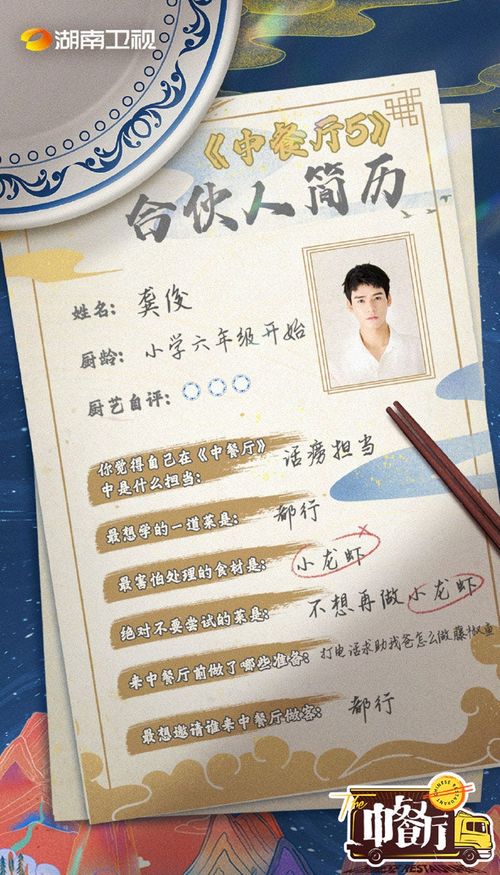 湖南卫视
《中餐厅5》
合伙人简历
姓名：龚俊
厨龄：小学六年级开始
厨艺自评：
你觉得自己在《中餐厅》
中是什么担当：话痨担当
最想学的一道菜是：都行
最害怕处理的食材是：小龙虾
绝对不要尝试的菜是：不想再做小龙虾
来中餐厅前做了哪些准备：打电话求助我爸怎么做藤椒鱼
最想邀请谁来中餐厅做客：都行
The
中餐厅